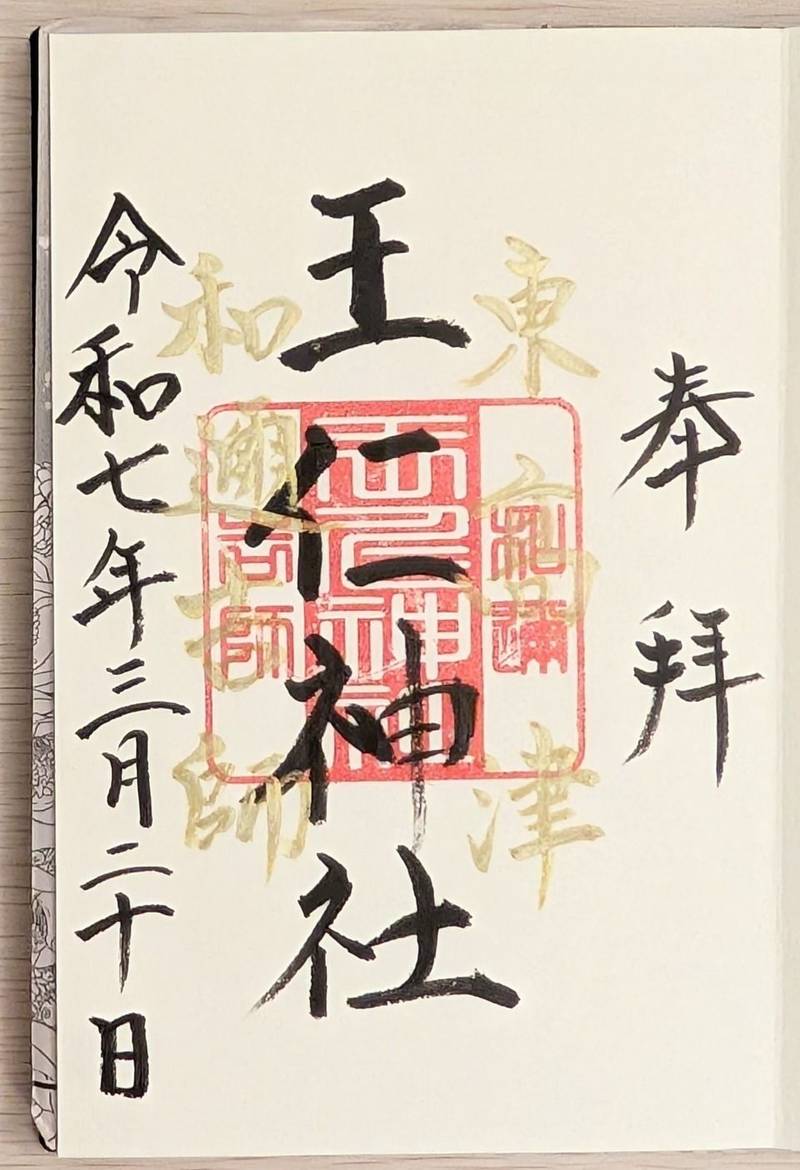 奉拝
東高津
王仁神社
和邇吉師
令和七年三月二十日
和邇
王仁神社
吉師